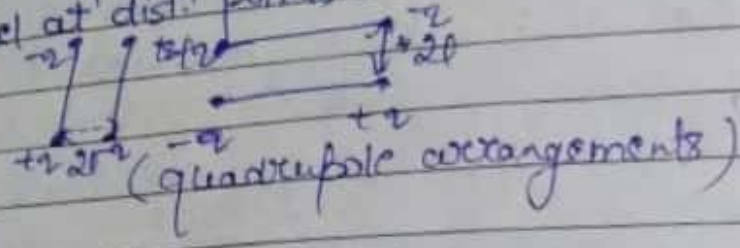 el at dist.
-q +q -q
2l
-q +q
+q 2l -q
(quadrupole arrangements)